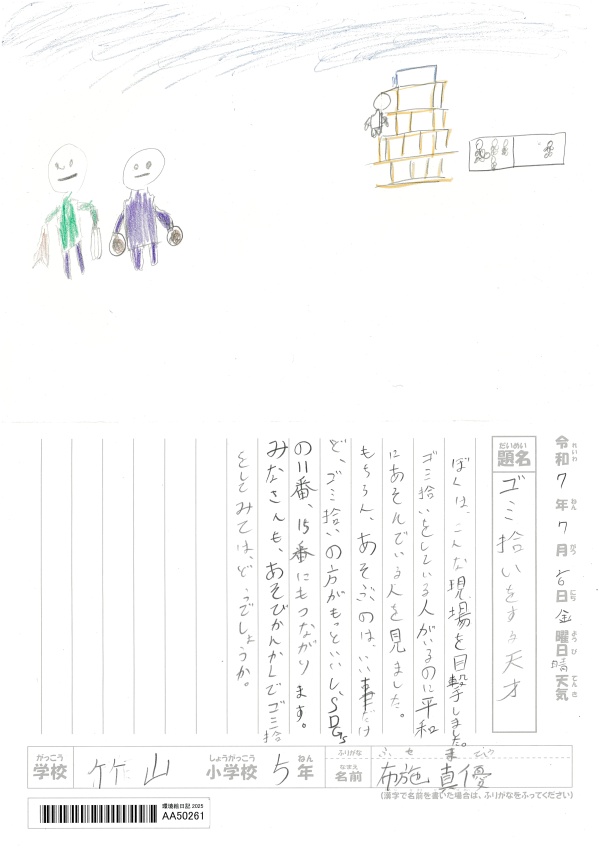 令和7年7月 日金曜日晴天気
れいわ ねん がつ にち ようび てんき
だいめい
題名
ゴミ拾いをする天才
ぼくは、こんな現場を目撃しました。
ゴミ拾いをしている人がいるのに平和
にあそんでいる人を見ました。
もちろん、あそぶのは、いい事だけ
ど、ゴミ拾いの方がもっといいし、SDGs
の11番、15番にもつながります。
みなさんも、あそびかんかくでゴミ拾
いしてみては、どうでしょうか。
がっこう
学校
竹山
しょうがっこう
小学校
5
ねん
年
ふりがな
ふせ
なまえ
名前
布施 真優
(漢字で名前を書いた場合は、ふりがなをふってください)
環境絵日記 2025
AA50261